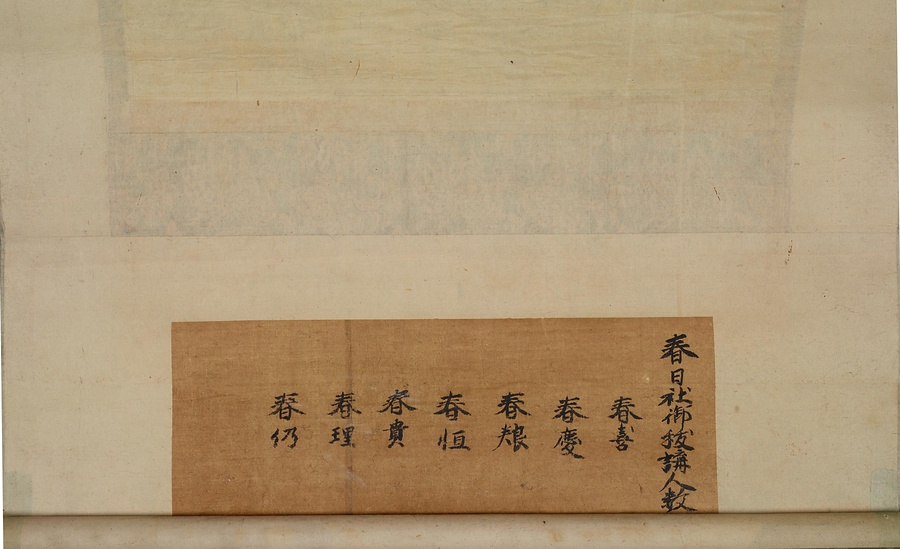 春日社御祓講人数
春喜
春慶
春粮
春恒
春貴
春理
春仍